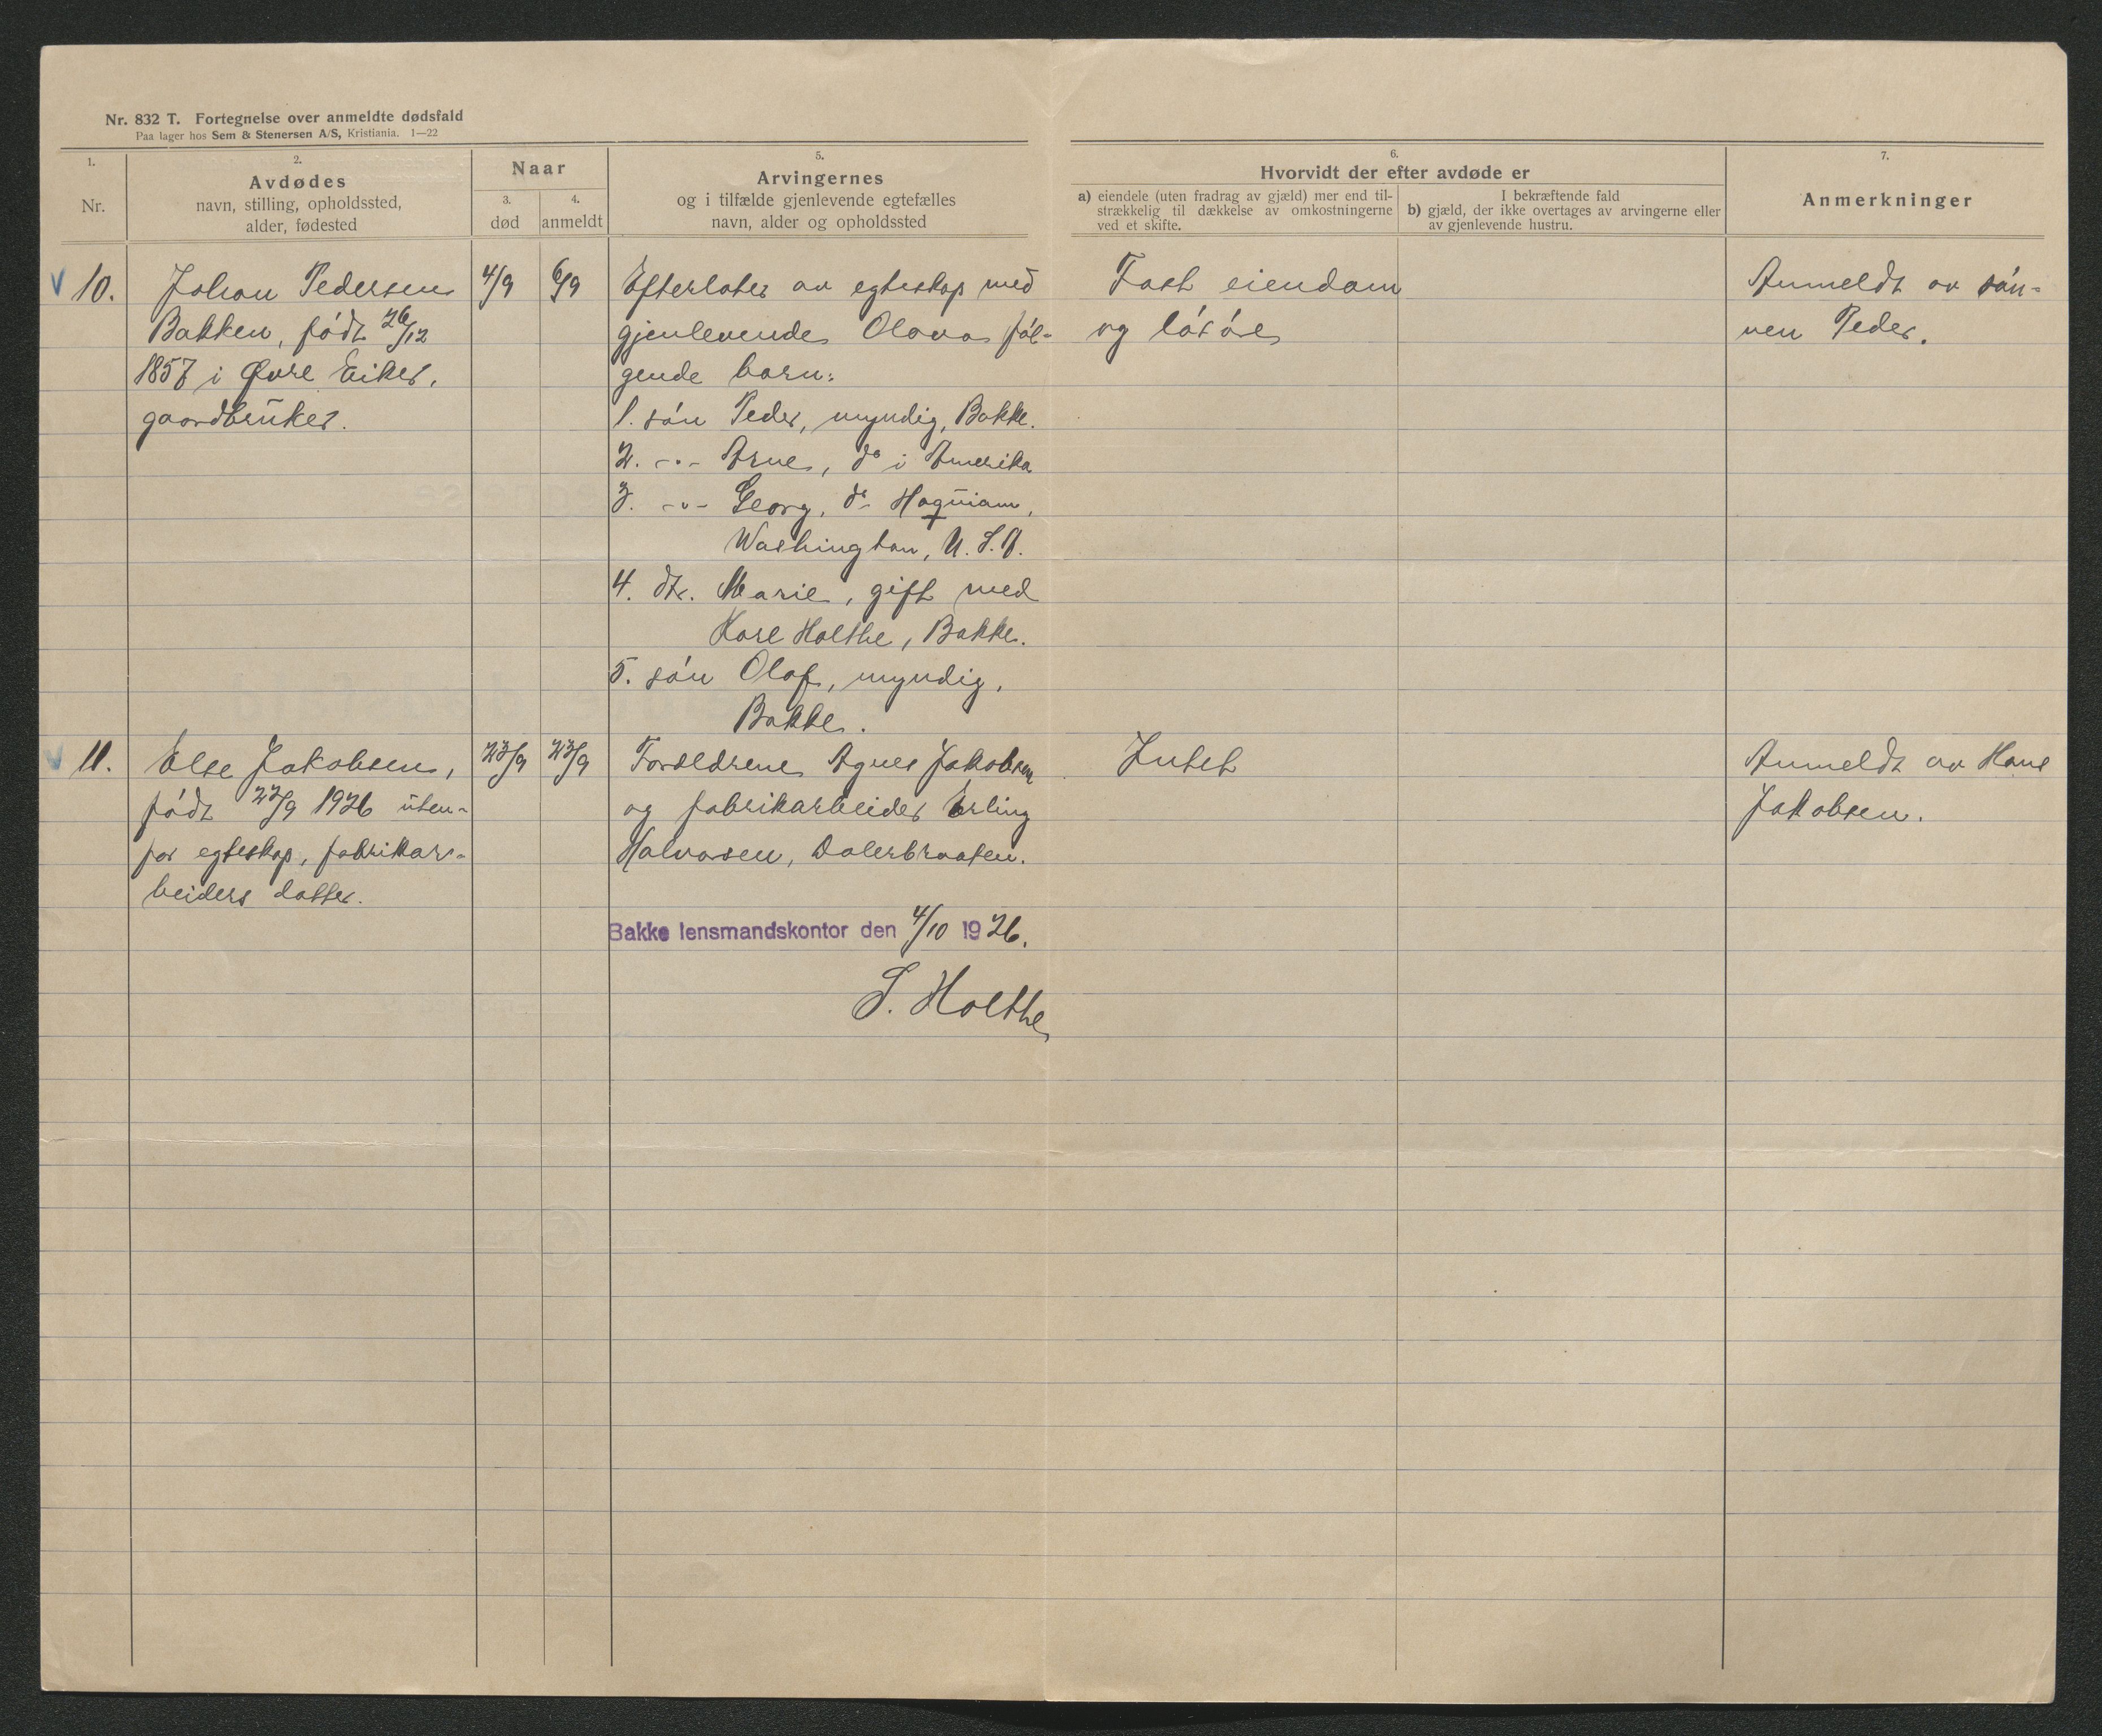 Nr. 832 T. Fortegnelse over anmeldte dødsfald
Paa lager hos Sem & Stenersen A/S, Kristiania. 1—22
1.
Nr.
2.
Avdødes
navn, stilling, opholdssted,
alder, fødested
Naar
3.
død
4.
anmeldt
5.
Arvingernes
og i tilfælde gjenlevende egtefælles
navn, alder og opholdssted
6.
Hvorvidt der efter avdøde er
a) eiendele (uten fradrag av gjæld) mer end til-
strækkelig til dækkelse av omkostningerne
ved et skifte.
I bekræftende fald
b) gjæld, der ikke overtages av arvingerne eller
av gjenlevende hustru.
7.
Anmerkninger
10.
Johan Pedersen
Bakken, født 26/12
1857 i Øvre Eiker,
gaardbruker.
4/9
6/9
Efterlater av egteskap med
gjenlevende Olava føl-
gende barn:
1. søn Peder, myndig, Bakke.
2. -"- Arne, do i Amerika
3. -"- Georg, do Hoquiam,
Washington, U.S.A.
4. dtr. Marie, gift med
Kare Holthe, Bakke.
5. søn Olaf, myndig,
Bakke.
Fast eiendom
og løsøre
Anmeldt av søn-
nen Peder.
11.
Else Jakobsen,
født 22/9 1926 uten-
for egteskap, fabrikar-
beiders datter.
23/9
23/9
Forældrene Agnes Jakobsen
og fabrikarbeider Erling
Halvorsen, Dalerbraaten.
Intet
Anmeldt av Hans
Jakobsen.
Bakke lensmandskontor den 4/10 1926.
S. Holthe